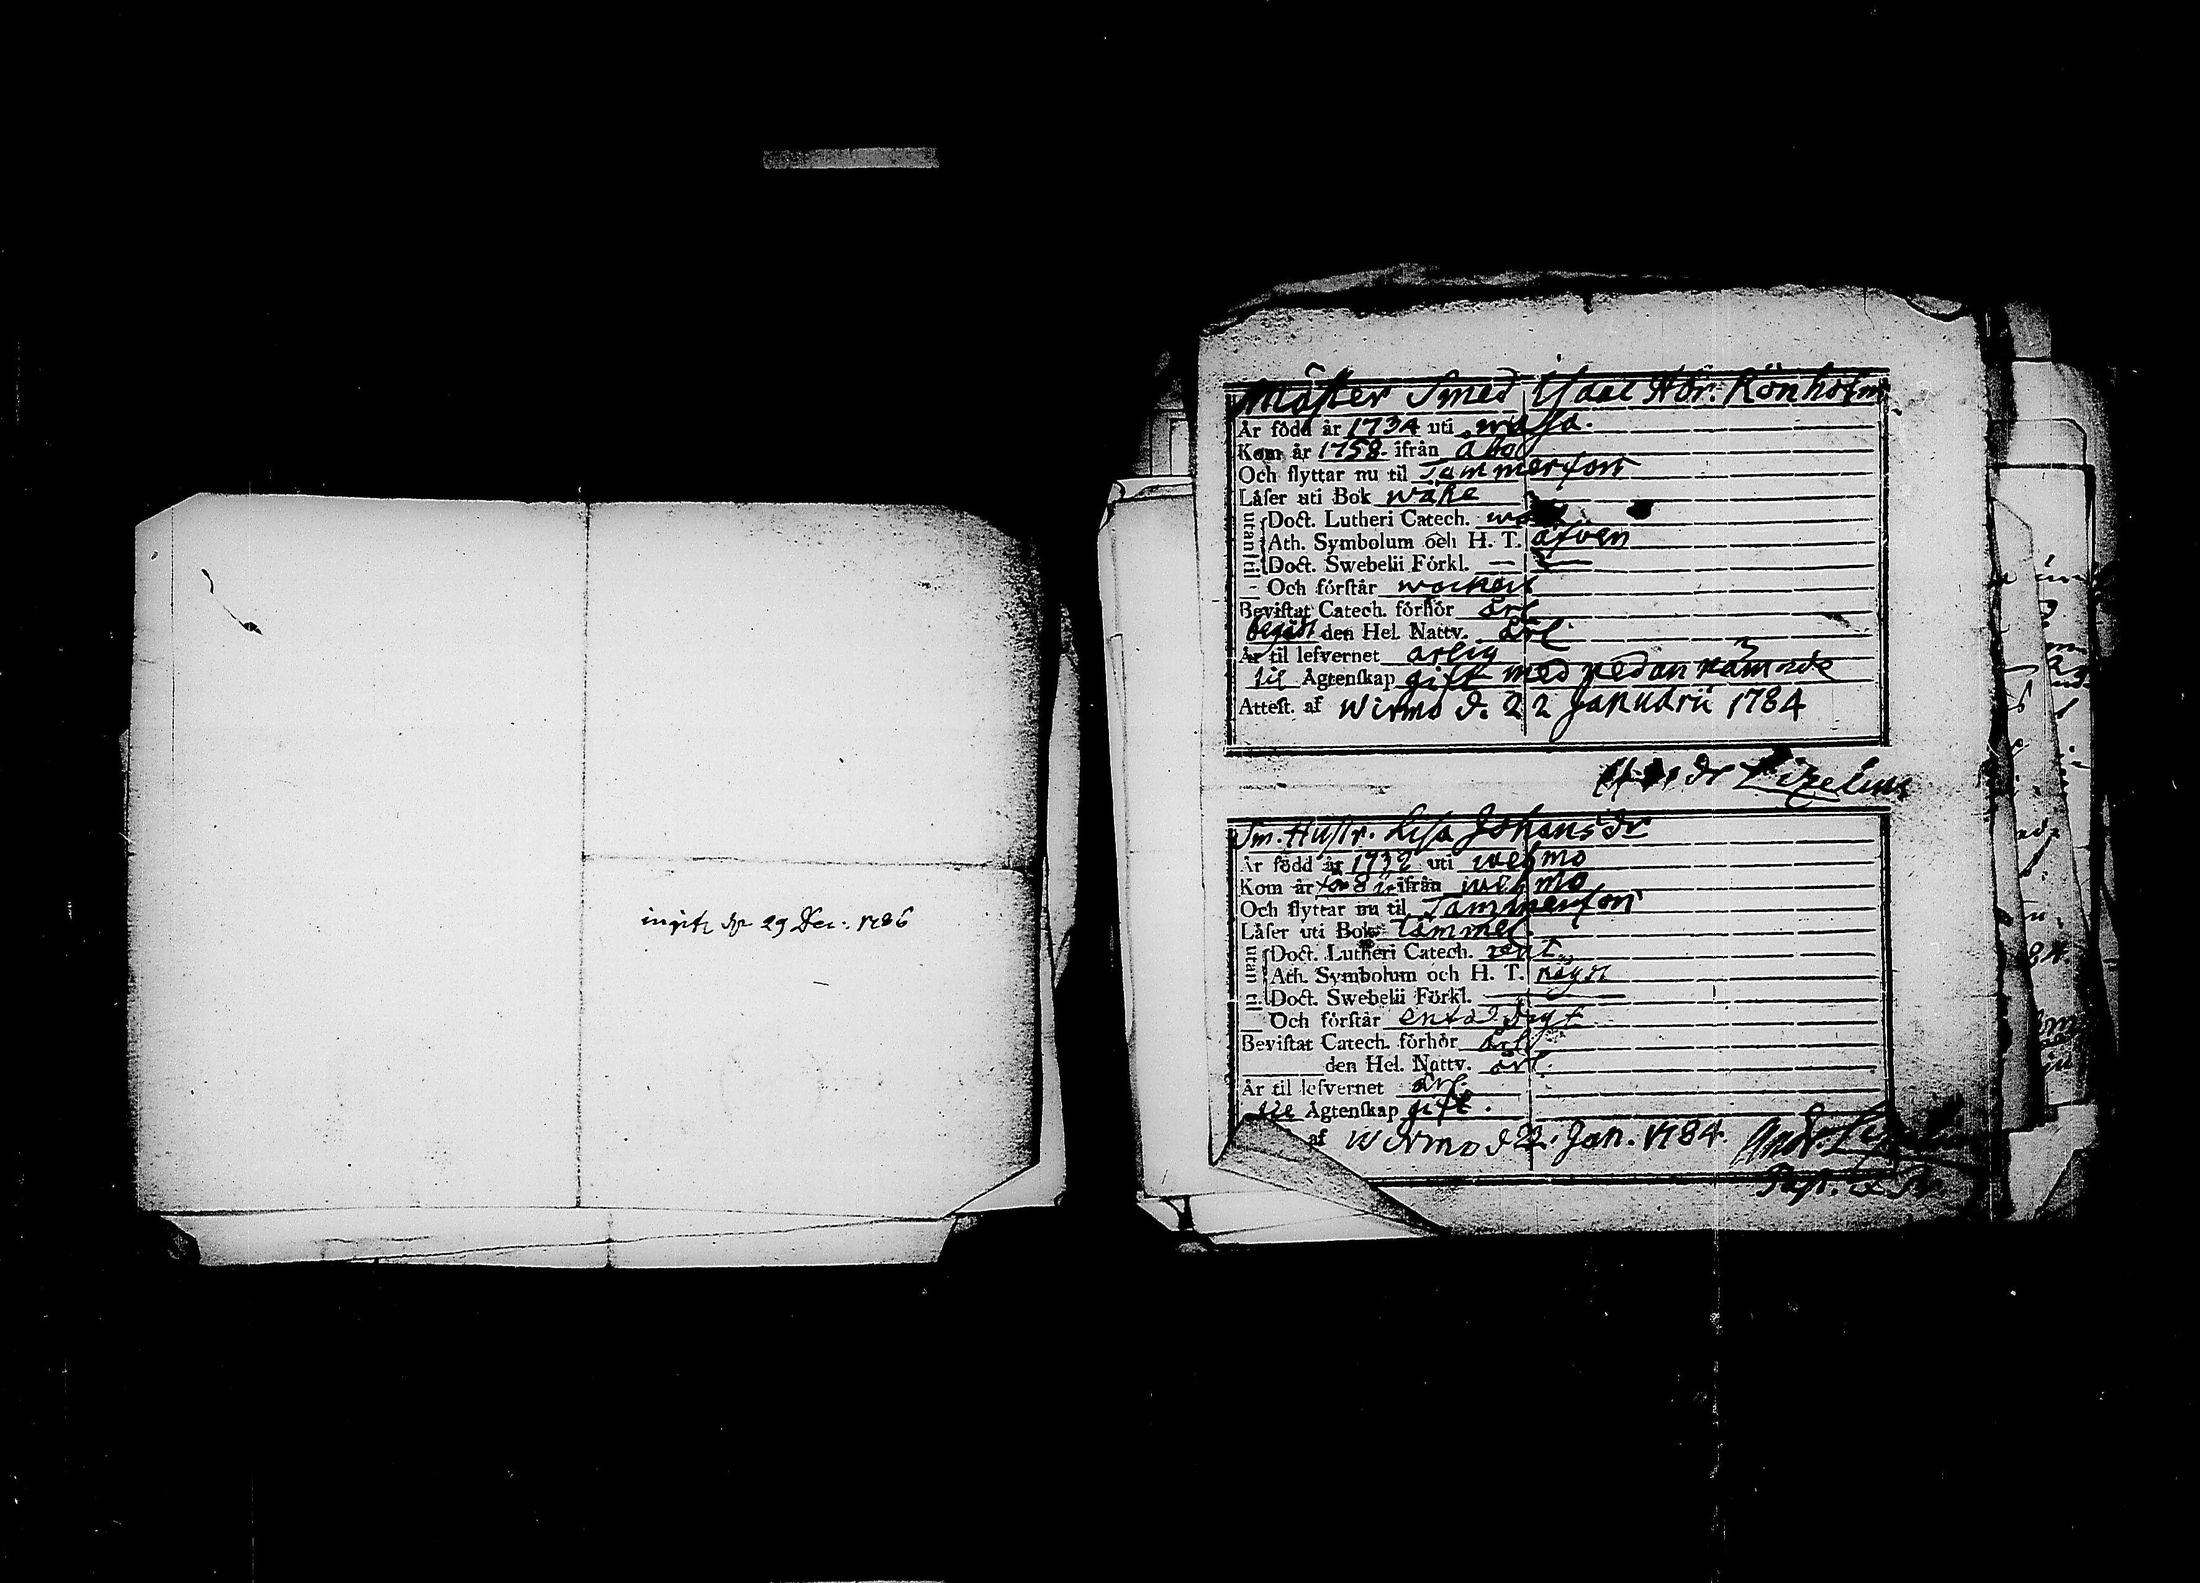 ingifz d. 29 Dec. 1786
Mäster Smed Isaac Abr. Rönholm
År född år 1734 uti wasa.
Kom år 1758. ifrån Åbo
Och flyttar nu til Tammerfors
Läser uti Bok wake
utantil
Doct. Lutheri Catech.
Ath. Symbolum och H. T. äfven
Doct. Swebelii Förkl. —
Och förstår wackert
Bevistat Catech. förhör ärl
begådt den Hel. Nattv. ärl.
År til lefvernet ärlig
til Ägtenskap gift med nedannämnde
Attest. af Wirmo d. 22 Januarii 1784
Andr Lizelius
Sm. Hustr. Lisa Johansdr
År född år 1732 uti wehmo
Kom år ifrån wehmo
Och flyttar nu til Tammerfors
Läser uti Bok
utantil
Doct. Lutheri Catech. rent
Ath. Symbolum och H. T. någdt
Doct. Swebelii Förkl. —
Och förstår enfaldigt
Bevistat Catech. förhör ärl
den Hel. Nattv. ärl.
År til lefvernet ärl.
til Ägtenskap gift.
af Wirmo d 22. Jan. 1784. Andr. Lizelius
Past.